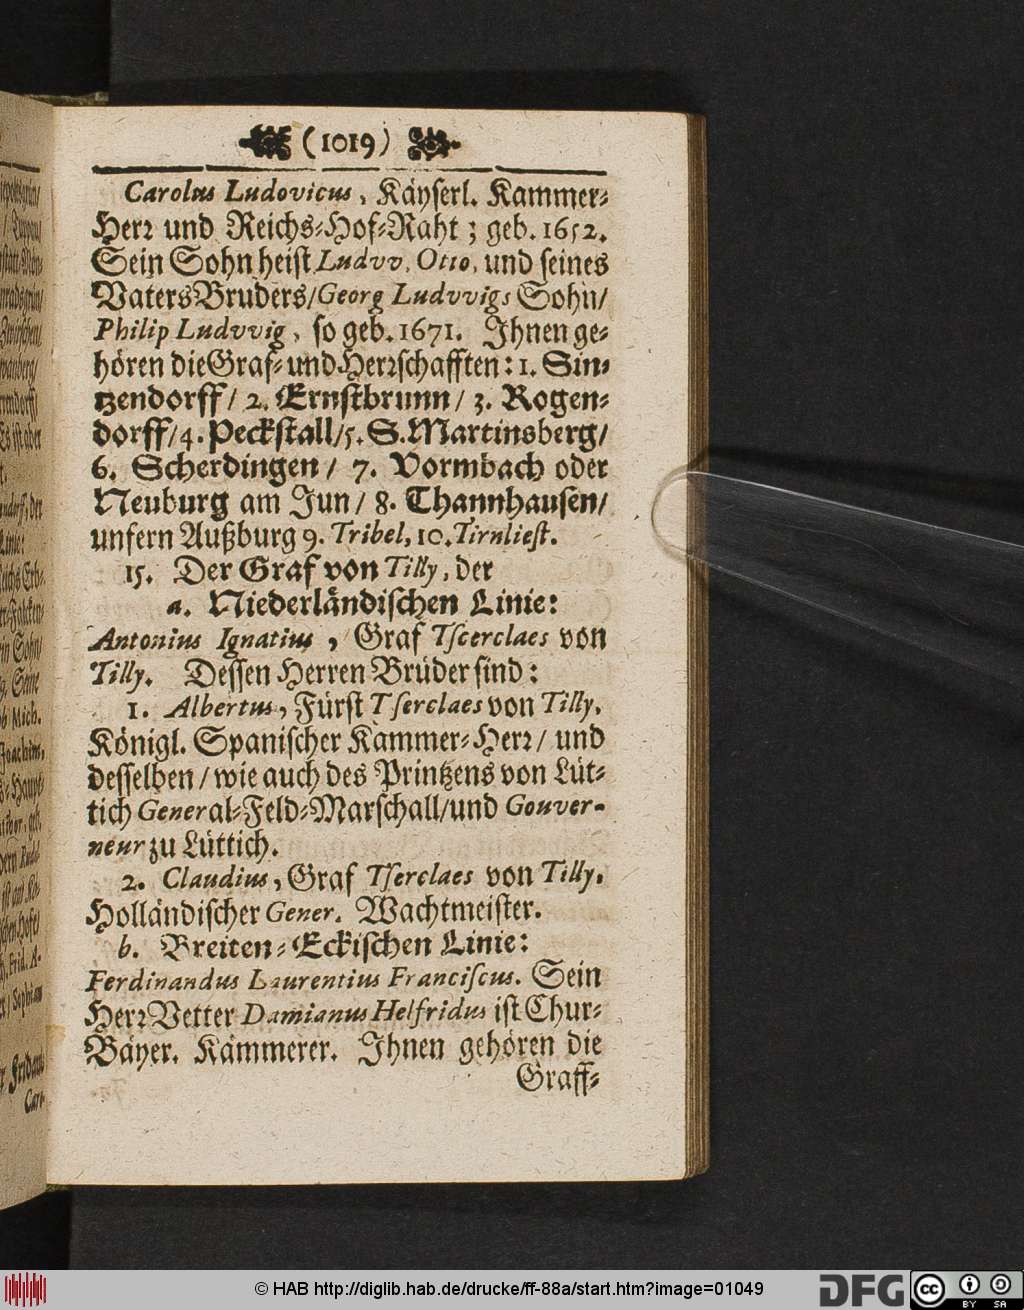 (1019)
Carolus Ludovicus, Käyserl. Kammer-
Herꝛ und Reichs-Hof-Raht; geb. 1652.
Sein Sohn heist Ludvv. Otto, und seines
Vaters Bruders/Georg Ludvvigs Sohn/
Philip Ludvvig, so geb. 1671. Ihnen ge-
hören die Graf- und Herꝛschafften: 1. Sin-
tzendorff/ 2. Ernstbrunn/ 3. Rogen-
dorff/4. Peckstall/5. S. Martinsberg/
6. Scherdingen/ 7. Vormbach oder
Neuburg am Jun/ 8. Thannhausen/
unfern Außburg 9. Tribel, 10. Tirnliest.
15. Der Graf von Tilly, der
a. Niederländischen Linie:
Antonius Ignatius, Graf Tscerclaes von
Tilly. Dessen Herren Brüder sind:
1. Albertus, Fürst Tserclaes von Tilly,
Königl. Spanischer Kammer-Herꝛ/ und
desselben/ wie auch des Printzens von Lüt-
tich General-Feld-Marschall/und Gouver-
neur zu Lüttich.
2. Claudius, Graf Tserclaes von Tilly,
Holländischer Gener. Wachtmeister.
b. Breiten-Eckischen Linie:
Ferdinandus Laurentius Franciscus. Sein
Herꝛ Vetter Damianus Helfridus ist Chur-
Bäyer. Kämmerer. Ihnen gehören die
Graff-
© HAB http://diglib.hab.de/drucke/ff-88a/start.htm?image=01049
DFG
cc
BY SA